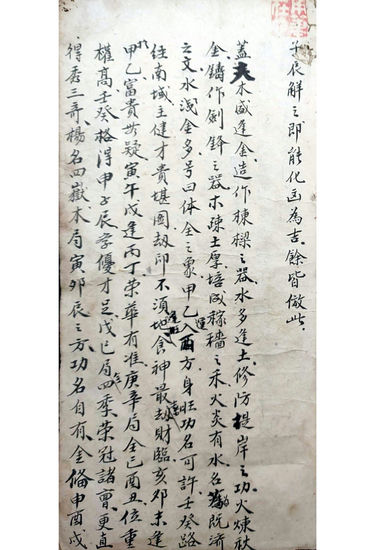 子辰解之即能化凶為吉餘皆倣此
蓋夫木盛逢金造作棟樑之器水多逢土修防提岸之功火煉秋
金鑄作劍鋒之器木疎土厚培成稼穡之禾火炎有水名為既濟
之文水淺金多号曰体全之象甲乙運入酉方身旺功名可許壬癸路
往南域主健才貴堪圖劫即不須逢旺地食神最劫財臨亥卯未逢
於甲乙富貴無疑寅午戌逢丙丁榮華有准庚辛局全巳酉丑位重
權高壬癸格得申子辰学優才足戊己局四季全榮冠諸曹更直
得秀三奇楊名四嶽木局寅卯辰之方功名自有金備申酉戌